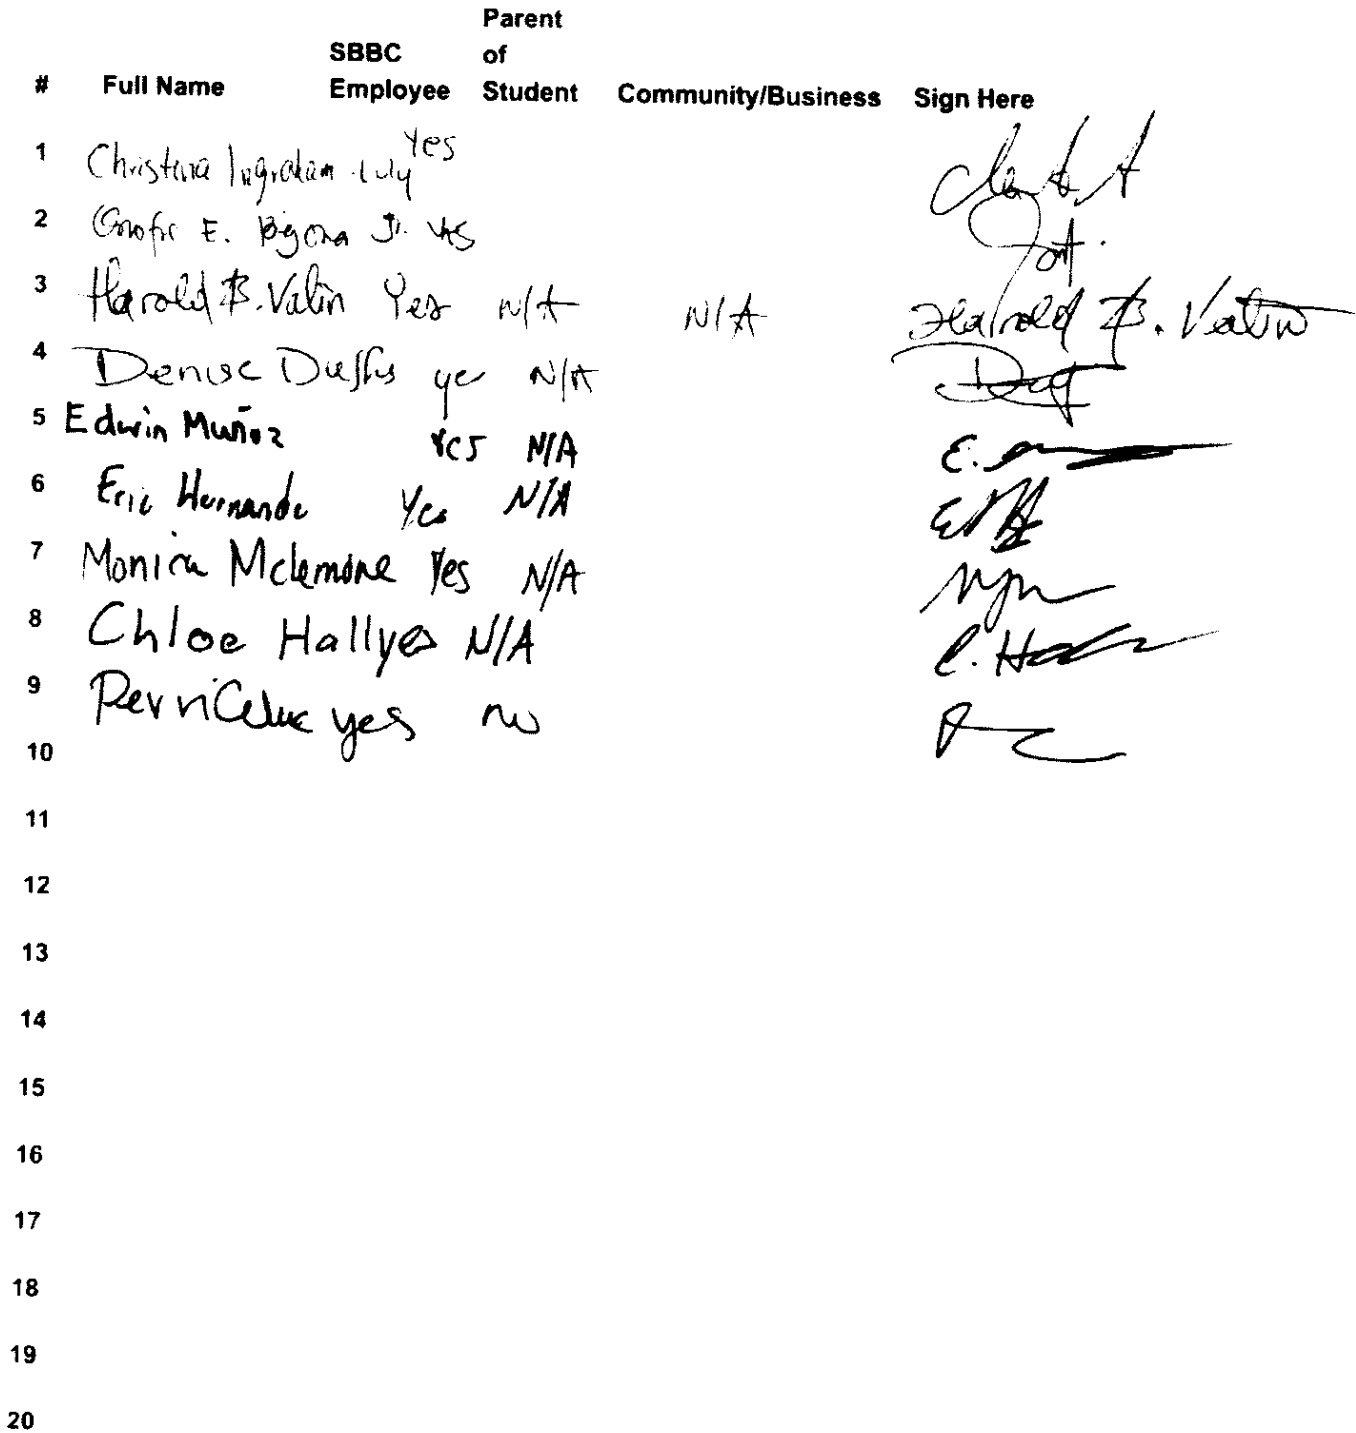 Parent
SBBC of
# Full Name Employee Student Community/Business Sign Here
1 Christina Ingraham Yes
2 E. Jr. yes
3 Harold B. Valin Yes N/A N/A Harold B. Valin
4 Denise Duffus ye N/A
5 Edwin Muñoz Yes N/A E.
6 Eric Hernande Yes N/A
7 Monica Mclemore Yes N/A
8 Chloe Hall yes N/A C.
9 yes no
10
11
12
13
14
15
16
17
18
19
20